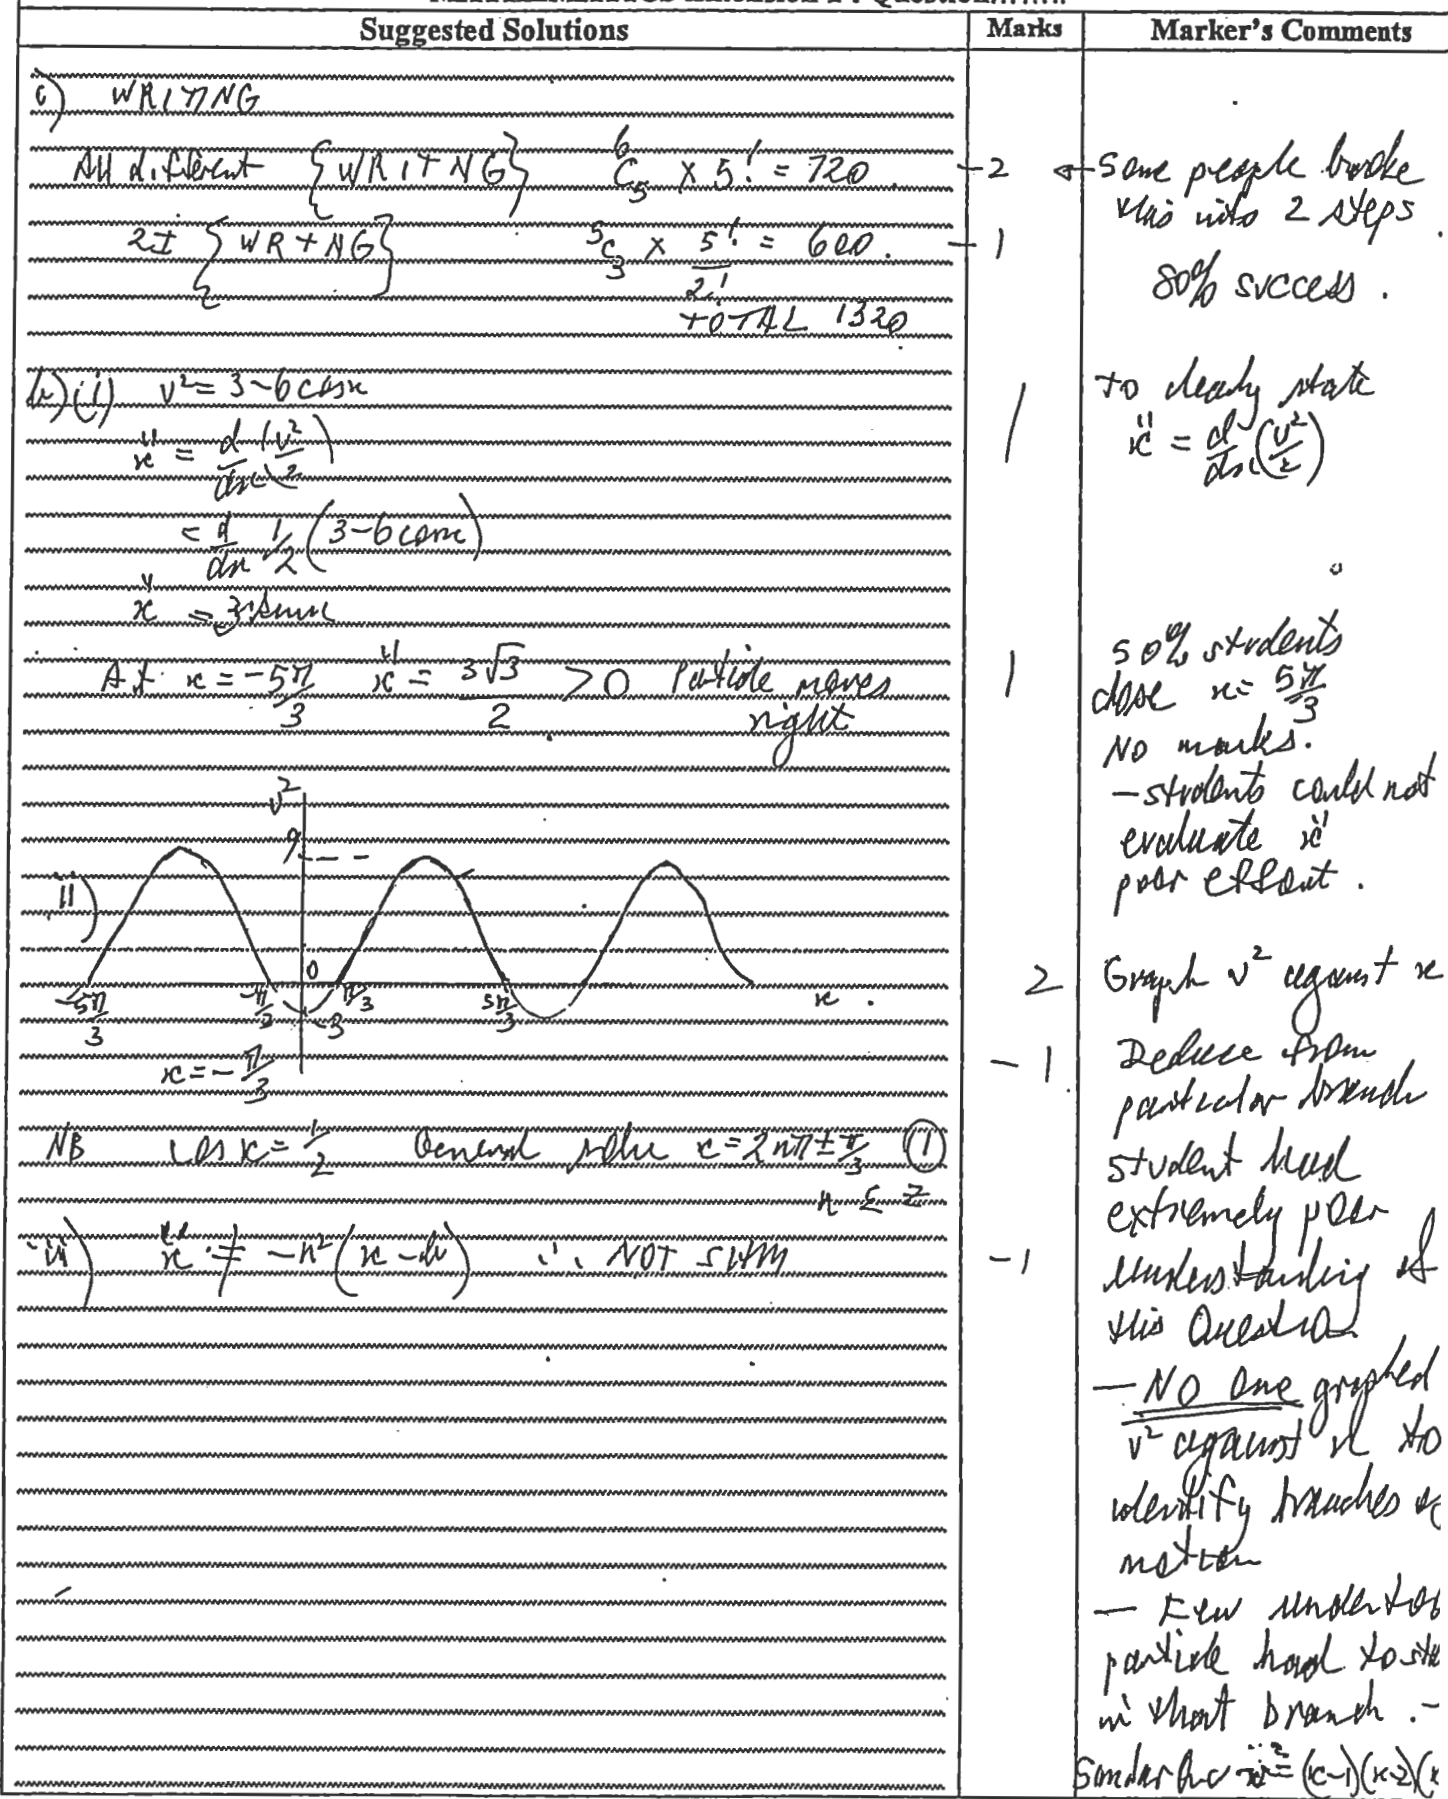 Suggested Solutions
Marks
Marker's Comments
c) WRITING
All different {WRITNG} ⁶C₅ × 5! = 720
2
Some people broke
this into 2 steps.
2I {WRTNG} ⁵C₃ × 5!/2! = 600.
1
80% success.
TOTAL 1320
b)(i) v² = 3-6cosx
1
To clearly state
ẍ = d/dx(v²/2)
ẍ = d/dx(v²/2)
= d/dx 1/2(3-6cosx)
ẍ = 3sinx
At x = -5π/3 ẍ = 3√3/2 > 0 Particle moves
right
1
50% students
chose x = 5π/3
No marks.
- students could not
evaluate ẍ
poor effort.
v²
9
ii)
0
-5π/3 -π/3 -3 π/3 5π/3 x
2
Graph v² against x
x = -π/3
-1
Deduce from
particular branch
NB cos x = 1/2 General solu x = 2nπ ± π/3 (1)
n ε Z
student had
extremely poor
understanding of
this Question
iii) ẍ ≠ -n²(x-b) ∴ NOT SHM
-1
- NO one graphed
v² against x to
identify branches of
motion
- Few
particle had to
in that branch. -
Similar (x-1)(x-2)(x